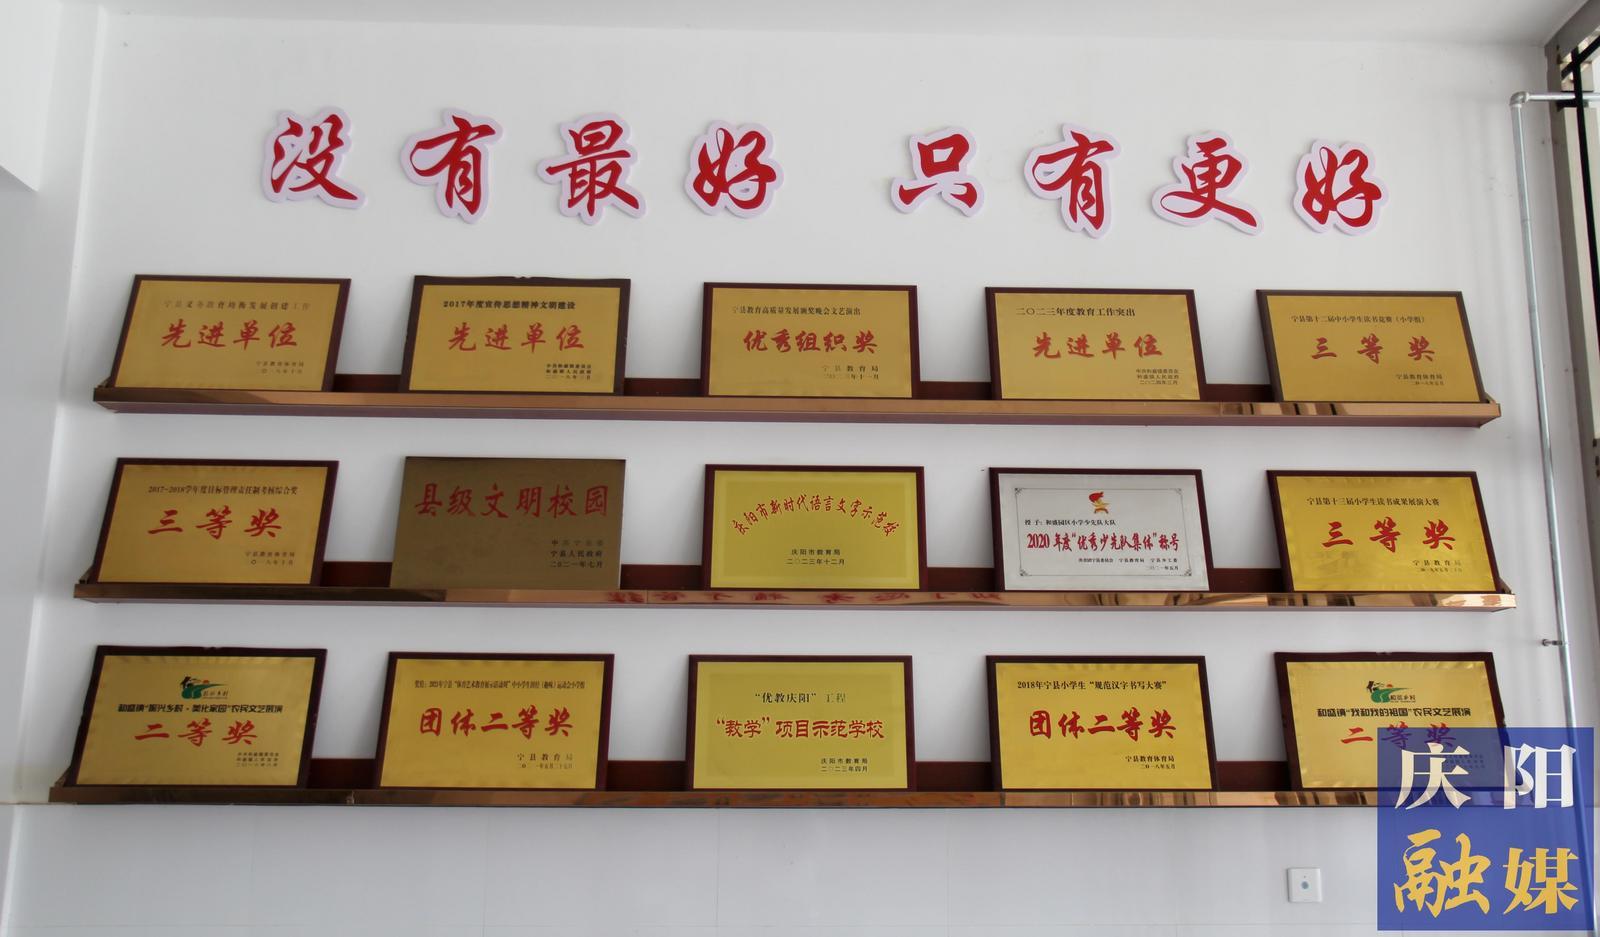 没有最好 只有更好
宁县义务教育均衡发展创建工作
先进单位
宁县教育体育局
二〇一八年十月
2017年度宣传思想精神文明建设
先进单位
中共和盛镇委员会
和盛镇人民政府
二〇一八年二月
宁县教育高质量发展颁奖晚会文艺演出
优秀组织奖
宁县教育局
二〇二三年十一月
二〇二三年度教育工作突出
先进单位
中共和盛镇委员会
和盛镇人民政府
二〇二四年三月
宁县第十二届中小学生读书竞赛（小学组）
三等奖
宁县教育体育局
二〇一八年五月
2017-2018学年度目标管理责任制考核综合奖
三等奖
宁县教育体育局
二〇一八年十月
县级文明校园
中共宁县委
宁县人民政府
二〇二一年七月
庆阳市新时代语言文字示范校
庆阳市教育局
二〇二三年十二月
授予：和盛园区小学少先队大队
2020年度“优秀少先队集体”称号
共青团宁县委员会 宁县教育局 宁县少工委
二〇二一年五月
宁县第十三届小学生读书成果展演大赛
三等奖
宁县教育局
和盛镇“振兴乡村·美化家园”农民文艺展演
二等奖
中共和盛镇委员会
和盛镇人民政府
团体二等奖
宁县教育局
“优教庆阳”工程
“教学”项目示范学校
庆阳市教育局
二〇二三年四月
2018年宁县小学生“规范汉字书写大赛”
团体二等奖
宁县教育体育局
二〇一八年五月
和盛镇“我和我的祖国”农民文艺展演
二等奖
庆阳
融媒